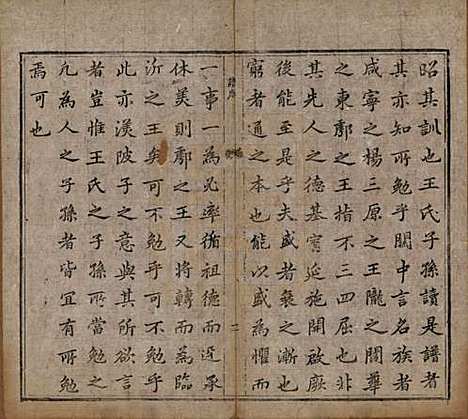 昭其訓也王氏子孫讀是譜者
其亦知所勉乎關中言名族者
咸寧之楊三原之王隴之閻華
之東鄠之王指不三四屈也非
其先人之德基實延施開啟厥
後能至是乎夫盛者衰之漸也
窮者通之本也能以盛為懼而
譜序
二
一事一為兄率循祖德而近承
休美則鄠之王又將轉而為臨
沂之王矣可不勉乎可不勉乎
此亦渼陂子之意與其所欲言
者豈惟王氏之子孫所當勉之
凡為人之子孫者皆宜有所勉
焉可也